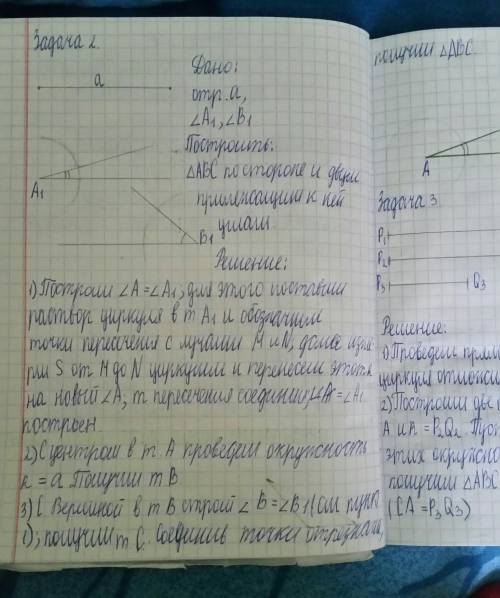 Задача 2.
a
Дано:
отр. a,
∠A₁, ∠B₁
Построить:
△ABC по стороне и двум
прилежащим к ней
углам
A₁
B₁
Решение:
1) Построим ∠A = ∠A₁, для этого поставим
раствор циркуля в т A₁ и обозначим
точки пересечения с лучами M и N, далее
S от M до N циркулем и перенесем
на новый ∠A, т пересечения соединим, ∠A = ∠A₁
построен.
2) С центром в т. A проведем окружность
R = a. Получим т. B.
3) С Вершиной в т B строй ∠B = ∠B₁ (см пункт
1); получим т C. Соединив точка отрезками,
получим △ABC.
A
Задача 3
P₁
P₂
P₃
Q₃
Решение:
1) Проведем
циркуля отложи
2) Построим две
A и R = P₂Q₂.
этих окружнос
получим △ABC
(CA = P₃Q₃)